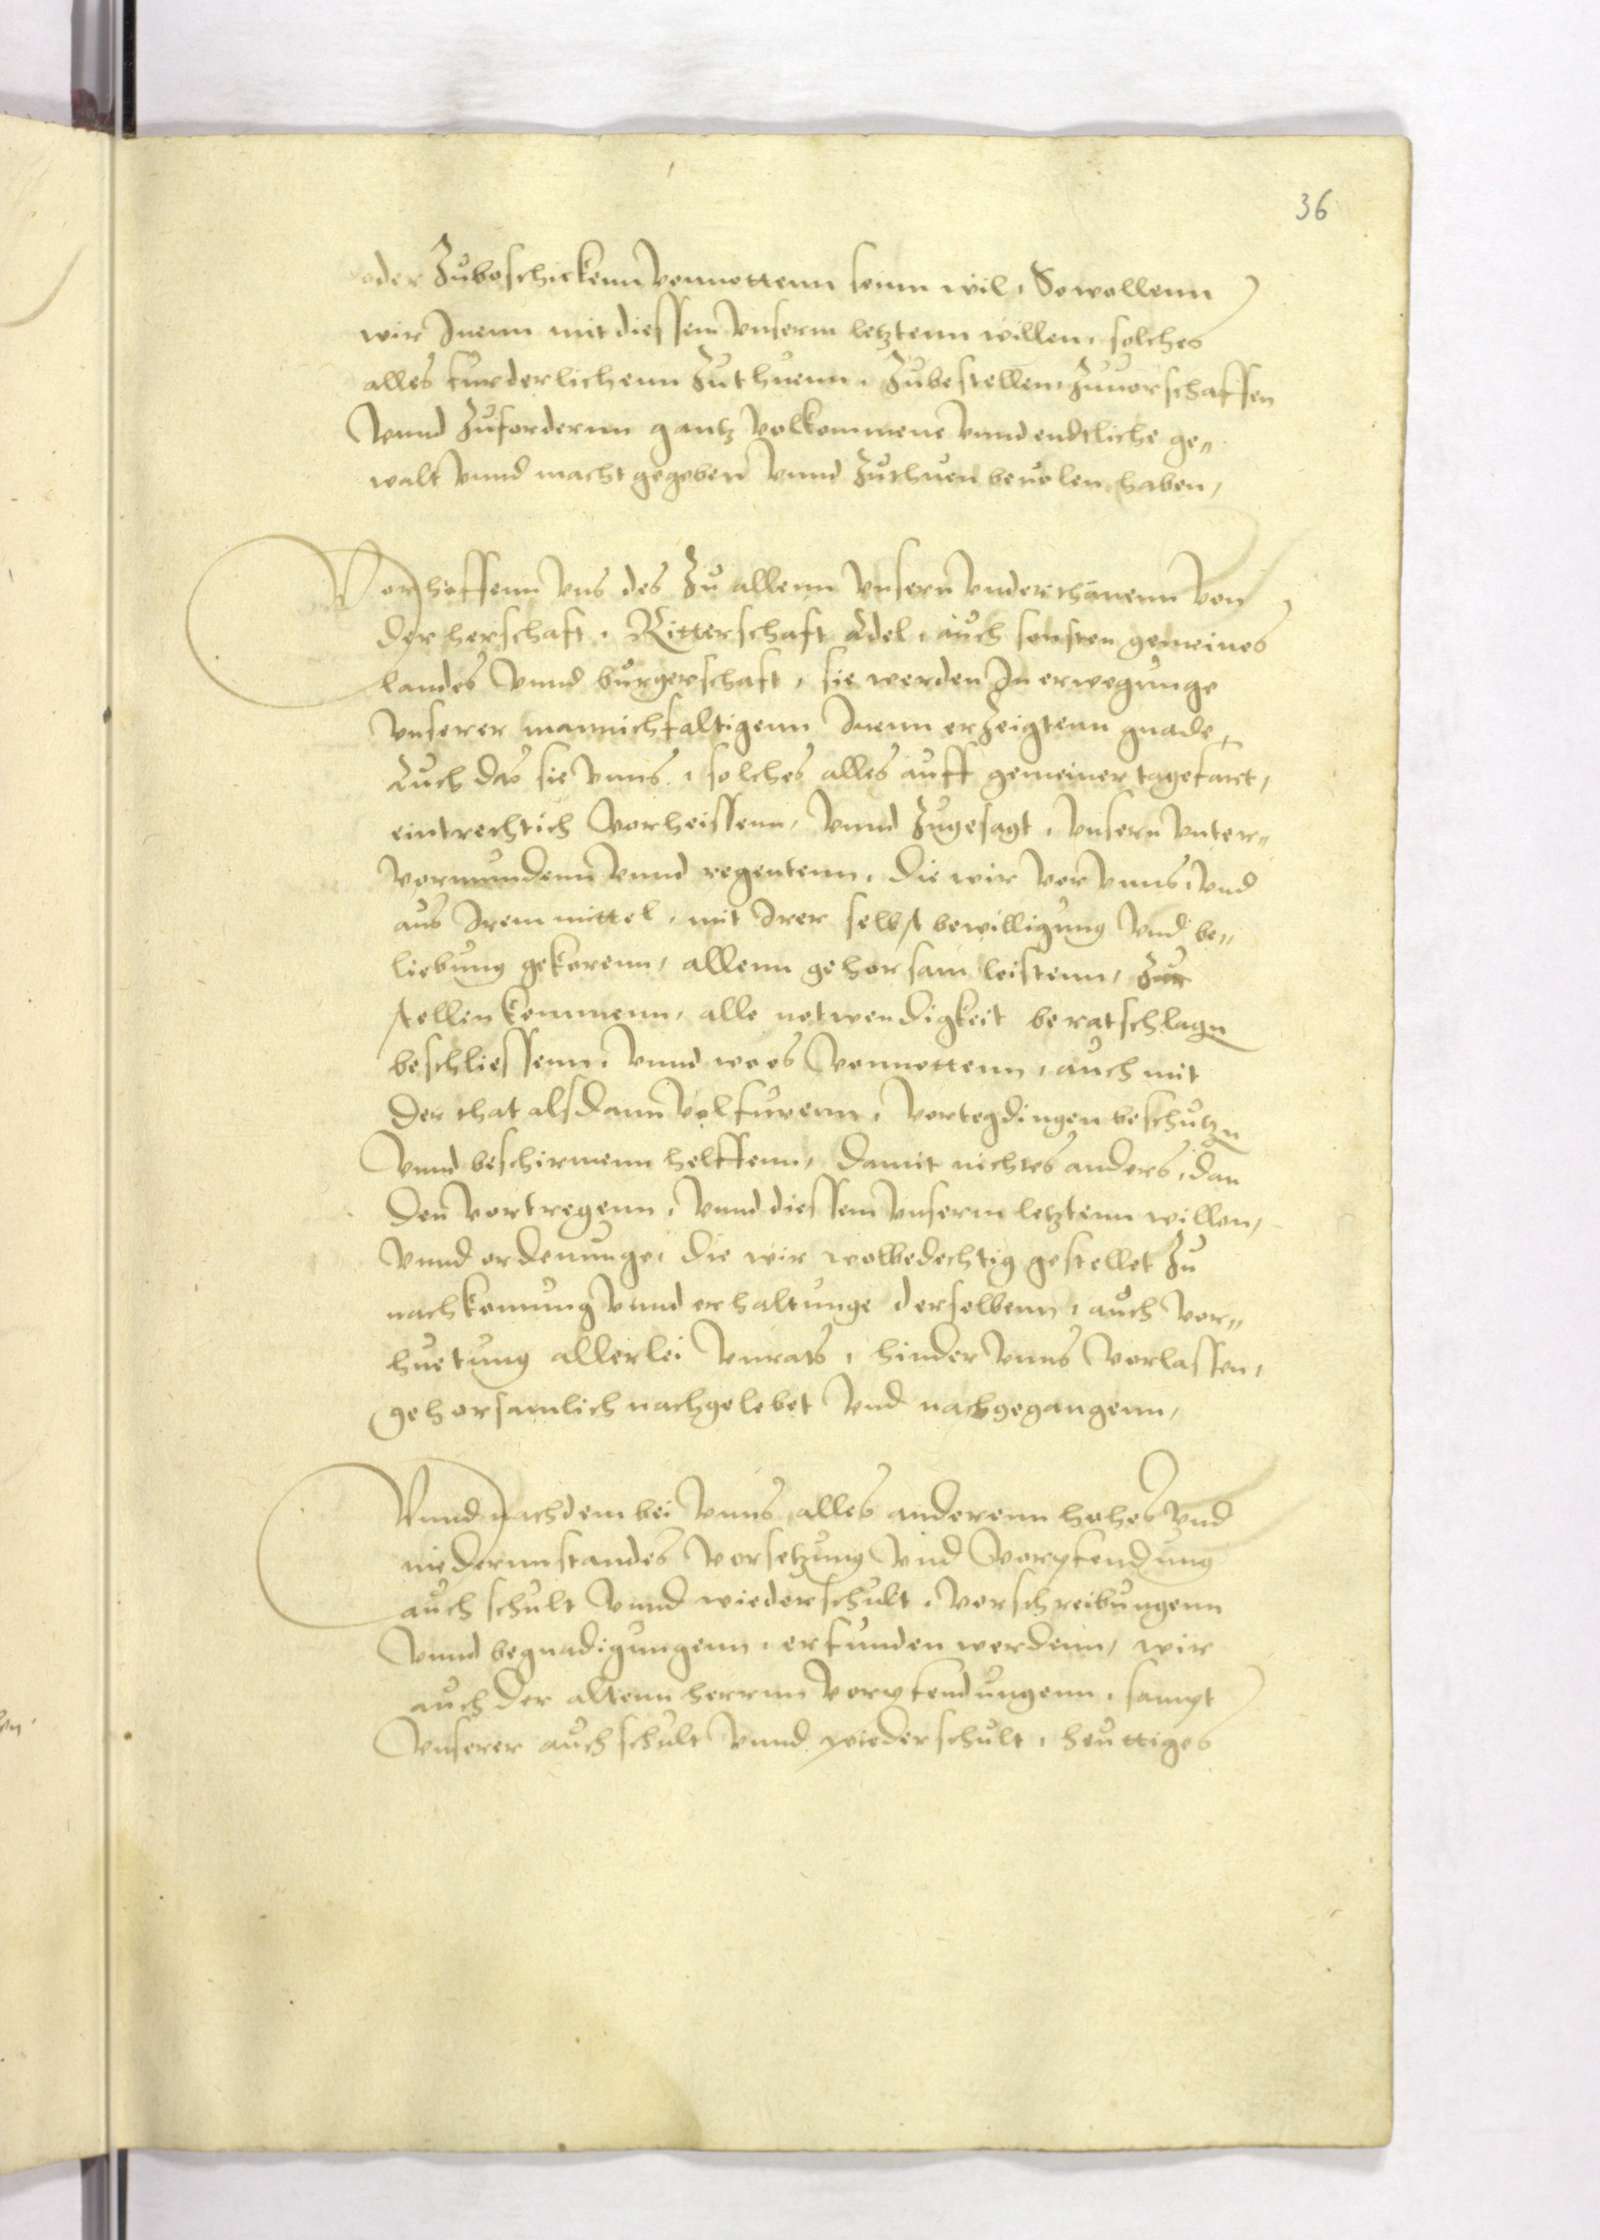 36
oder Zubeschickenn vonnottenn seinn wil, So wollenn
wir Inenn mit diessem vnserm letztenn willen, solches
alles furderlichenn Zuthuenn, Zubestellenn, Zuuorschaffen
vnnd Zufordernn gantz volkommene vnnd endtliche ge„
walt vnnd macht gegeben vnnd Zuthuen beuolen haben,
Vorhoffenn vns des Zu allenn vnsern vnderthanenn von
der herschaft, Ritterschaft Adel, auch sonsten gemeines
landes vnnd burgerschaft, sie werden In erwegunge
vnserer mannichfaltigenn Inenn erZeigtenn gnade,
Auch das sie vnns, solches alles auff gemeiner tagefart,
eintrechtich vorheissenn, vnnd Zugesagt, vnsern vnter„
vormundenn vnnd regentenn, die wir vor vnns, vnd
aus Irem mittel, mit Irer selbst bewilligung vnd be„
liebung gekorenn, allenn gehorsam leistenn, Zur
stellen kommenn, alle notwendigkeit beratschlagn
beschliessenn, vnnd wo es vonnottenn, auch mit
der that alsdann volfurenn, vortegdingen beschutzn
vnnd beschirmenn helffenn, damit nichtes anders, dan
den vortregenn, vnnd diessem vnserm letztenn willen,
vnnd ordenunge, die wir wolbedechtig gestellet Zu
nachkomung vnnd erhaltunge derselbenn, auch vor„
huetung allerlei vnrats, hinder vnns vorlassen,
gehorsamlich nachgelebet vnd nachgegangenn,
Vnnd nachdem bei vnns alles anderenn hohes vnd
niedernnstandes vorsetzung vnd vorpfendung
auch schult vnnd wiederschult, vorschreibungenn
vnnd begnadigungenn, erfunden werdenn, wir
auch der altenn herrnn vorpfendungenn, sampt
vnserer auch schult vnnd wiederschult, heuttiges